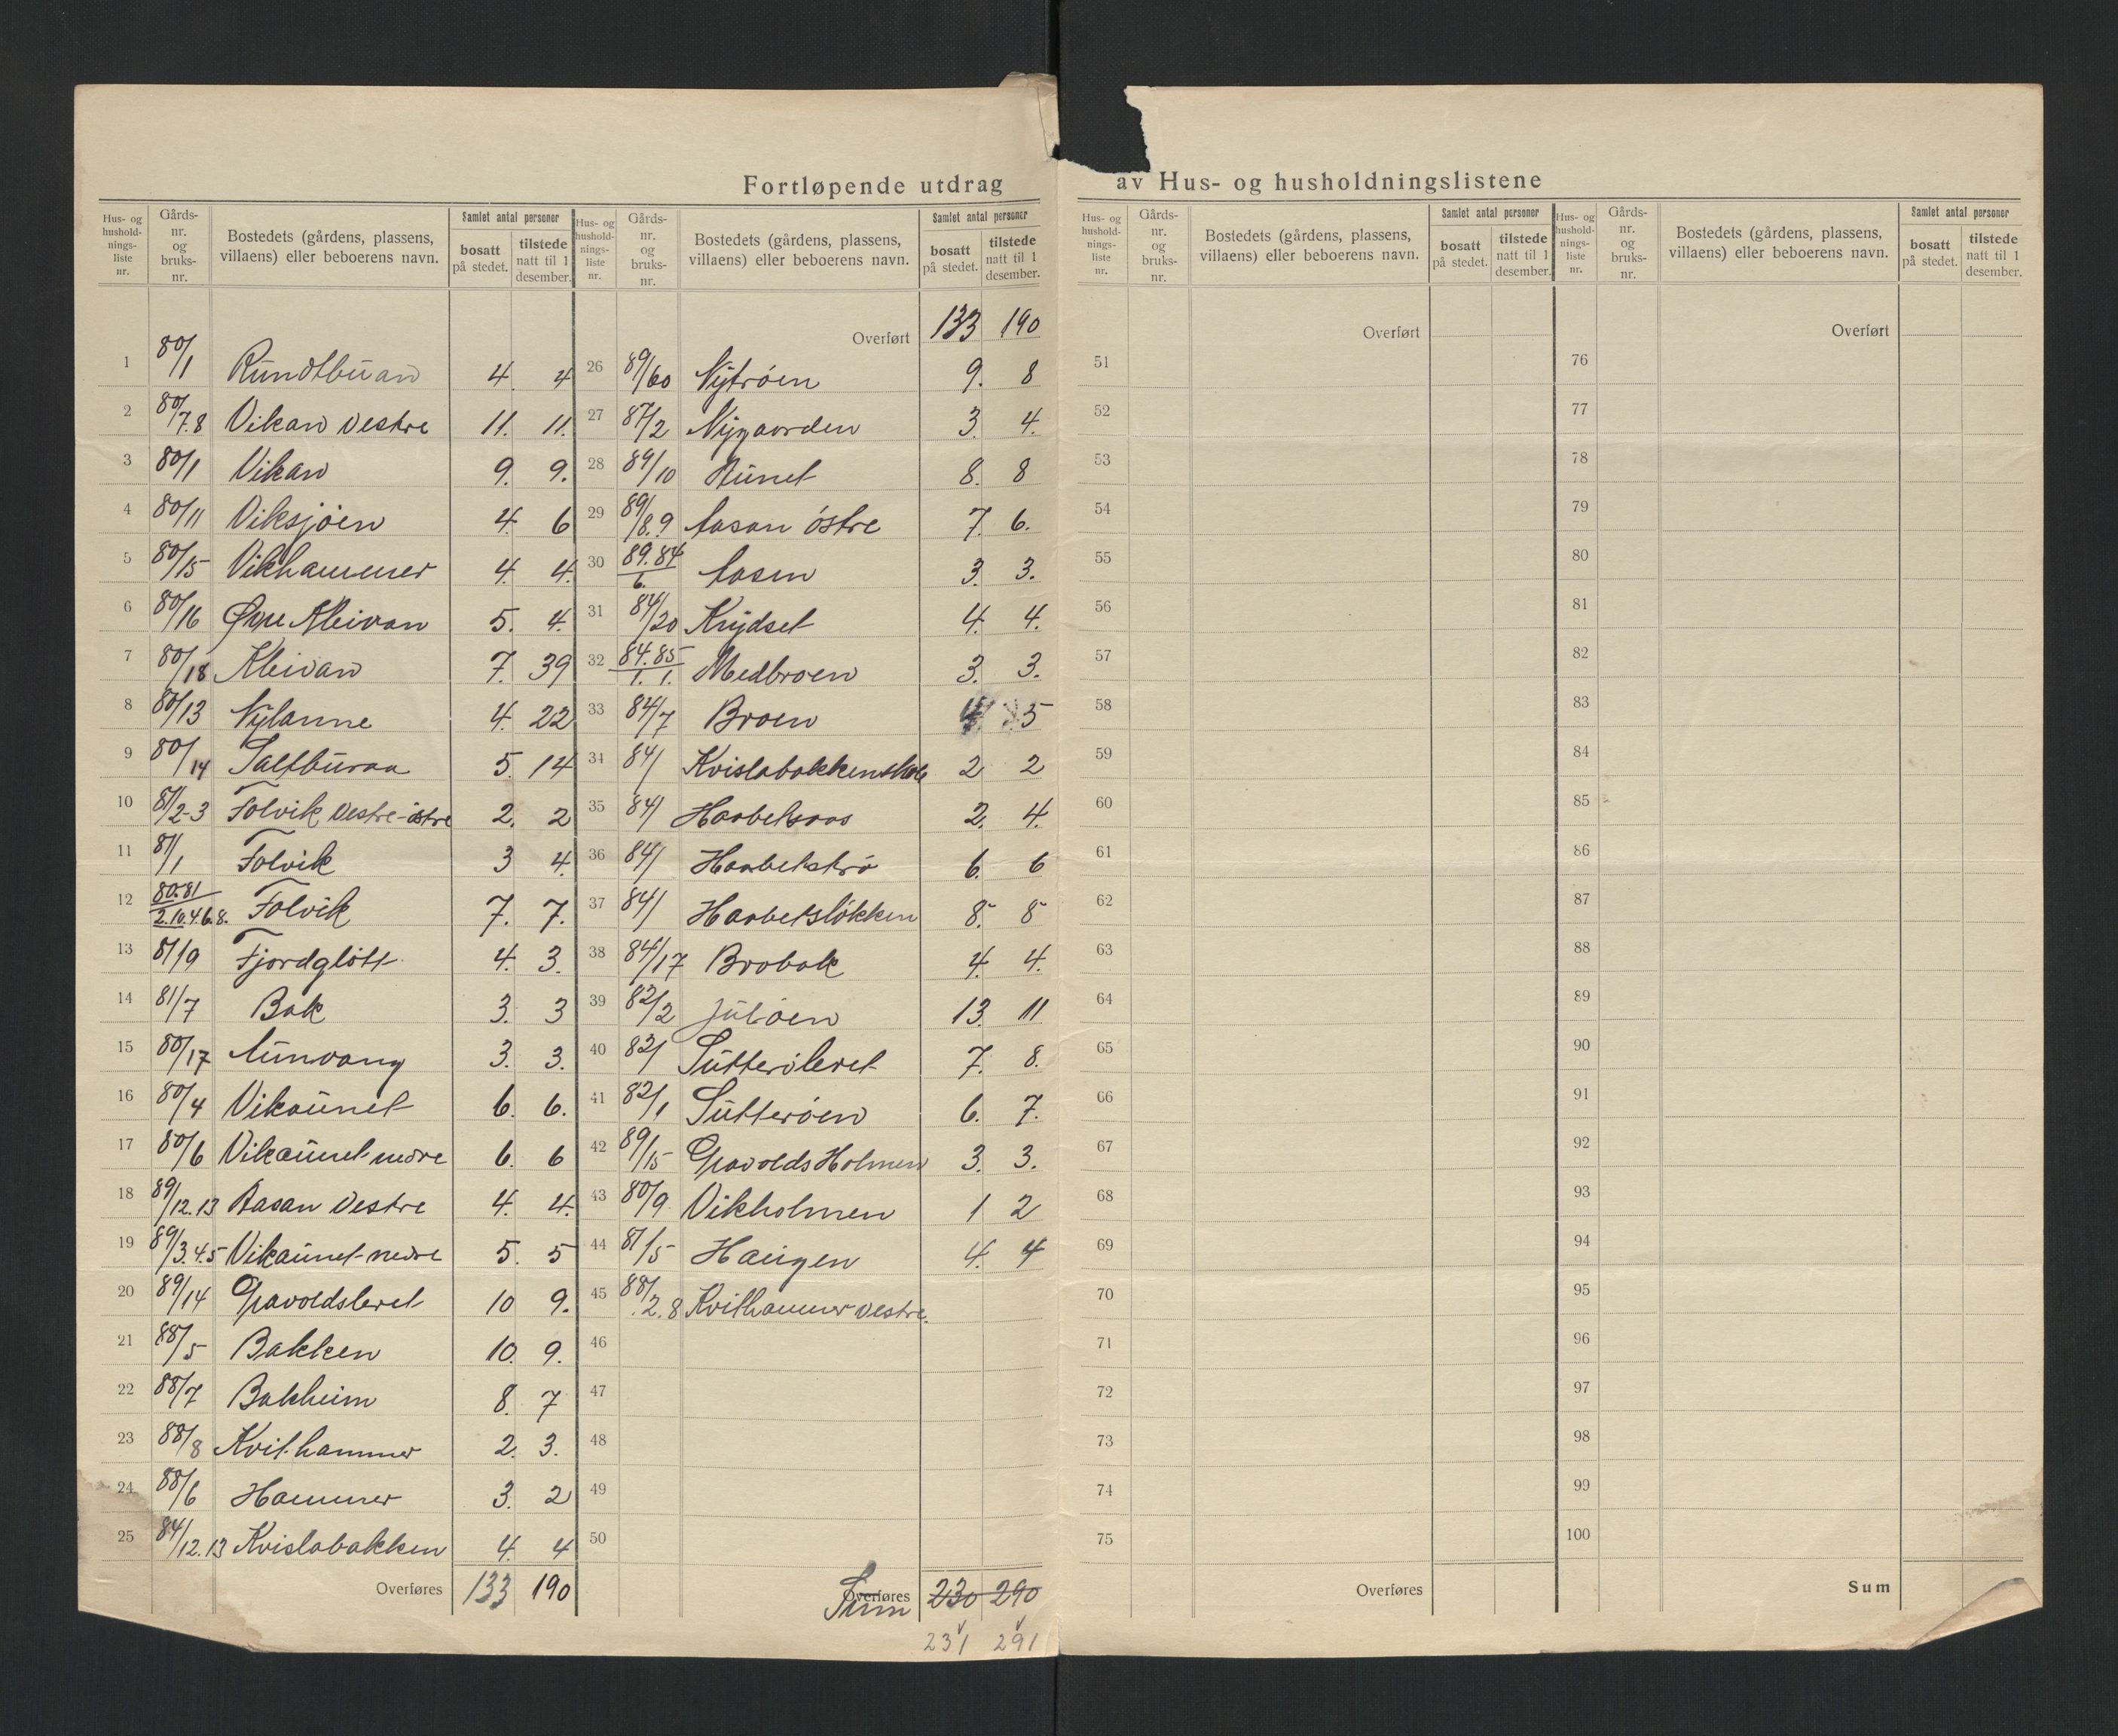 Fortløpende utdrag av Hus- og husholdningslistene
Hus- og hushold-nings-liste nr. Gårds-nr. og bruks-nr. Bostedets (gårdens, plassens, villaens) eller beboerens navn. Samlet antal personer bosatt på stedet. tilstede natt til 1 desember.
1 80/1 Rundtbuan 4. 4
2 80/7.8 Vikan vestre 11. 11.
3 80/1 Vikan 9. 9.
4 80/11 Viksjøen 4. 6
5 80/15 Vikhammer 4. 4.
6 80/16 Øvre Kleivan 5. 4.
7 80/18 Kleivan 7. 39
8 80/13 Nylanne 4. 22
9 80/14 Saltburaa 5. 14
10 81/2-3 Folvik vestre-østre 2. 2
11 81/1 Folvik 3 4.
12 80.81/2.10.4.6.8. Folvik 7. 7.
13 81/9 Fjordgløtt 4. 3.
14 81/7 Bak 3. 3
15 80/17 Aunvang 3. 3.
16 80/4 Vikaunet 6. 6.
17 80/6 Vikaunet nedre 6. 6
18 89/12.13 Aasan Vestre 4. 4.
19 89/3.4.5 Vikaunet-nedre 5. 5
20 89/14 Gravoldsleret 10 9.
21 88/5 Bakken 10. 9.
22 88/7 Bakheim 8. 7
23 88/8 Kvithammer 2. 3.
24 88/6 Hammer 3. 2
25 84/12.13 Kvislabakken 4. 4
Overføres 133 190
Hus- og hushold-nings-liste nr. Gårds-nr. og bruks-nr. Bostedets (gårdens, plassens, villaens) eller beboerens navn. Samlet antal personer bosatt på stedet. tilstede natt til 1 desember.
Overført 133 190
26 89/60 Nytrøen 9. 8
27 87/2 Nygaarden 3. 4.
28 89/10 Aunet 8. 8
29 89/8.9 Aasan østre 7. 6.
30 89.84/6. Aasen 3. 3.
31 84/20 Krydset 4. 4.
32 84.85/1. 1. Medbroen 3. 3.
33 84/7 Broen 4 5
34 84/ Kvislabakken skole 2 2
35 84/ Haabetsaas 2. 4.
36 84/ Haabetstrø 6. 6
37 84/ Haabetsløkken 8. 8
38 84/17 Brobak 4. 4.
39 82/2 Juløen 13. 11
40 82/ Sutterøleret 7. 8.
41 82/1 Sutterøen 6. 7.
42 89/15 Gravolds Holmen 3. 3.
43 80/9 Vikholmen 1 2
44 81/5 Haugen 4. 4
45 88/.2.8 Kvithammer vestre.
46
47
48
49
50
Overføres Sum 230 290
231 291
Hus- og hushold-nings-liste nr. Gårds-nr. og bruks-nr. Bostedets (gårdens, plassens, villaens) eller beboerens navn. Samlet antal personer bosatt på stedet. tilstede natt til 1 desember.
Overført
51
52
53
54
55
56
57
58
59
60
61
62
63
64
65
66
67
68
69
70
71
72
73
74
75
Overføres
Hus- og hushold-nings-liste nr. Gårds-nr. og bruks-nr. Bostedets (gårdens, plassens, villaens) eller beboerens navn. Samlet antal personer bosatt på stedet. tilstede natt til 1 desember.
Overført
76
77
78
79
80
81
82
83
84
85
86
87
88
89
90
91
92
93
94
95
96
97
98
99
100
Sum